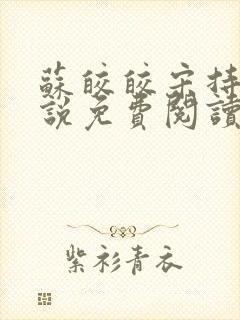 蘇皎皎宋持
說免費閱讀
紫衫青衣